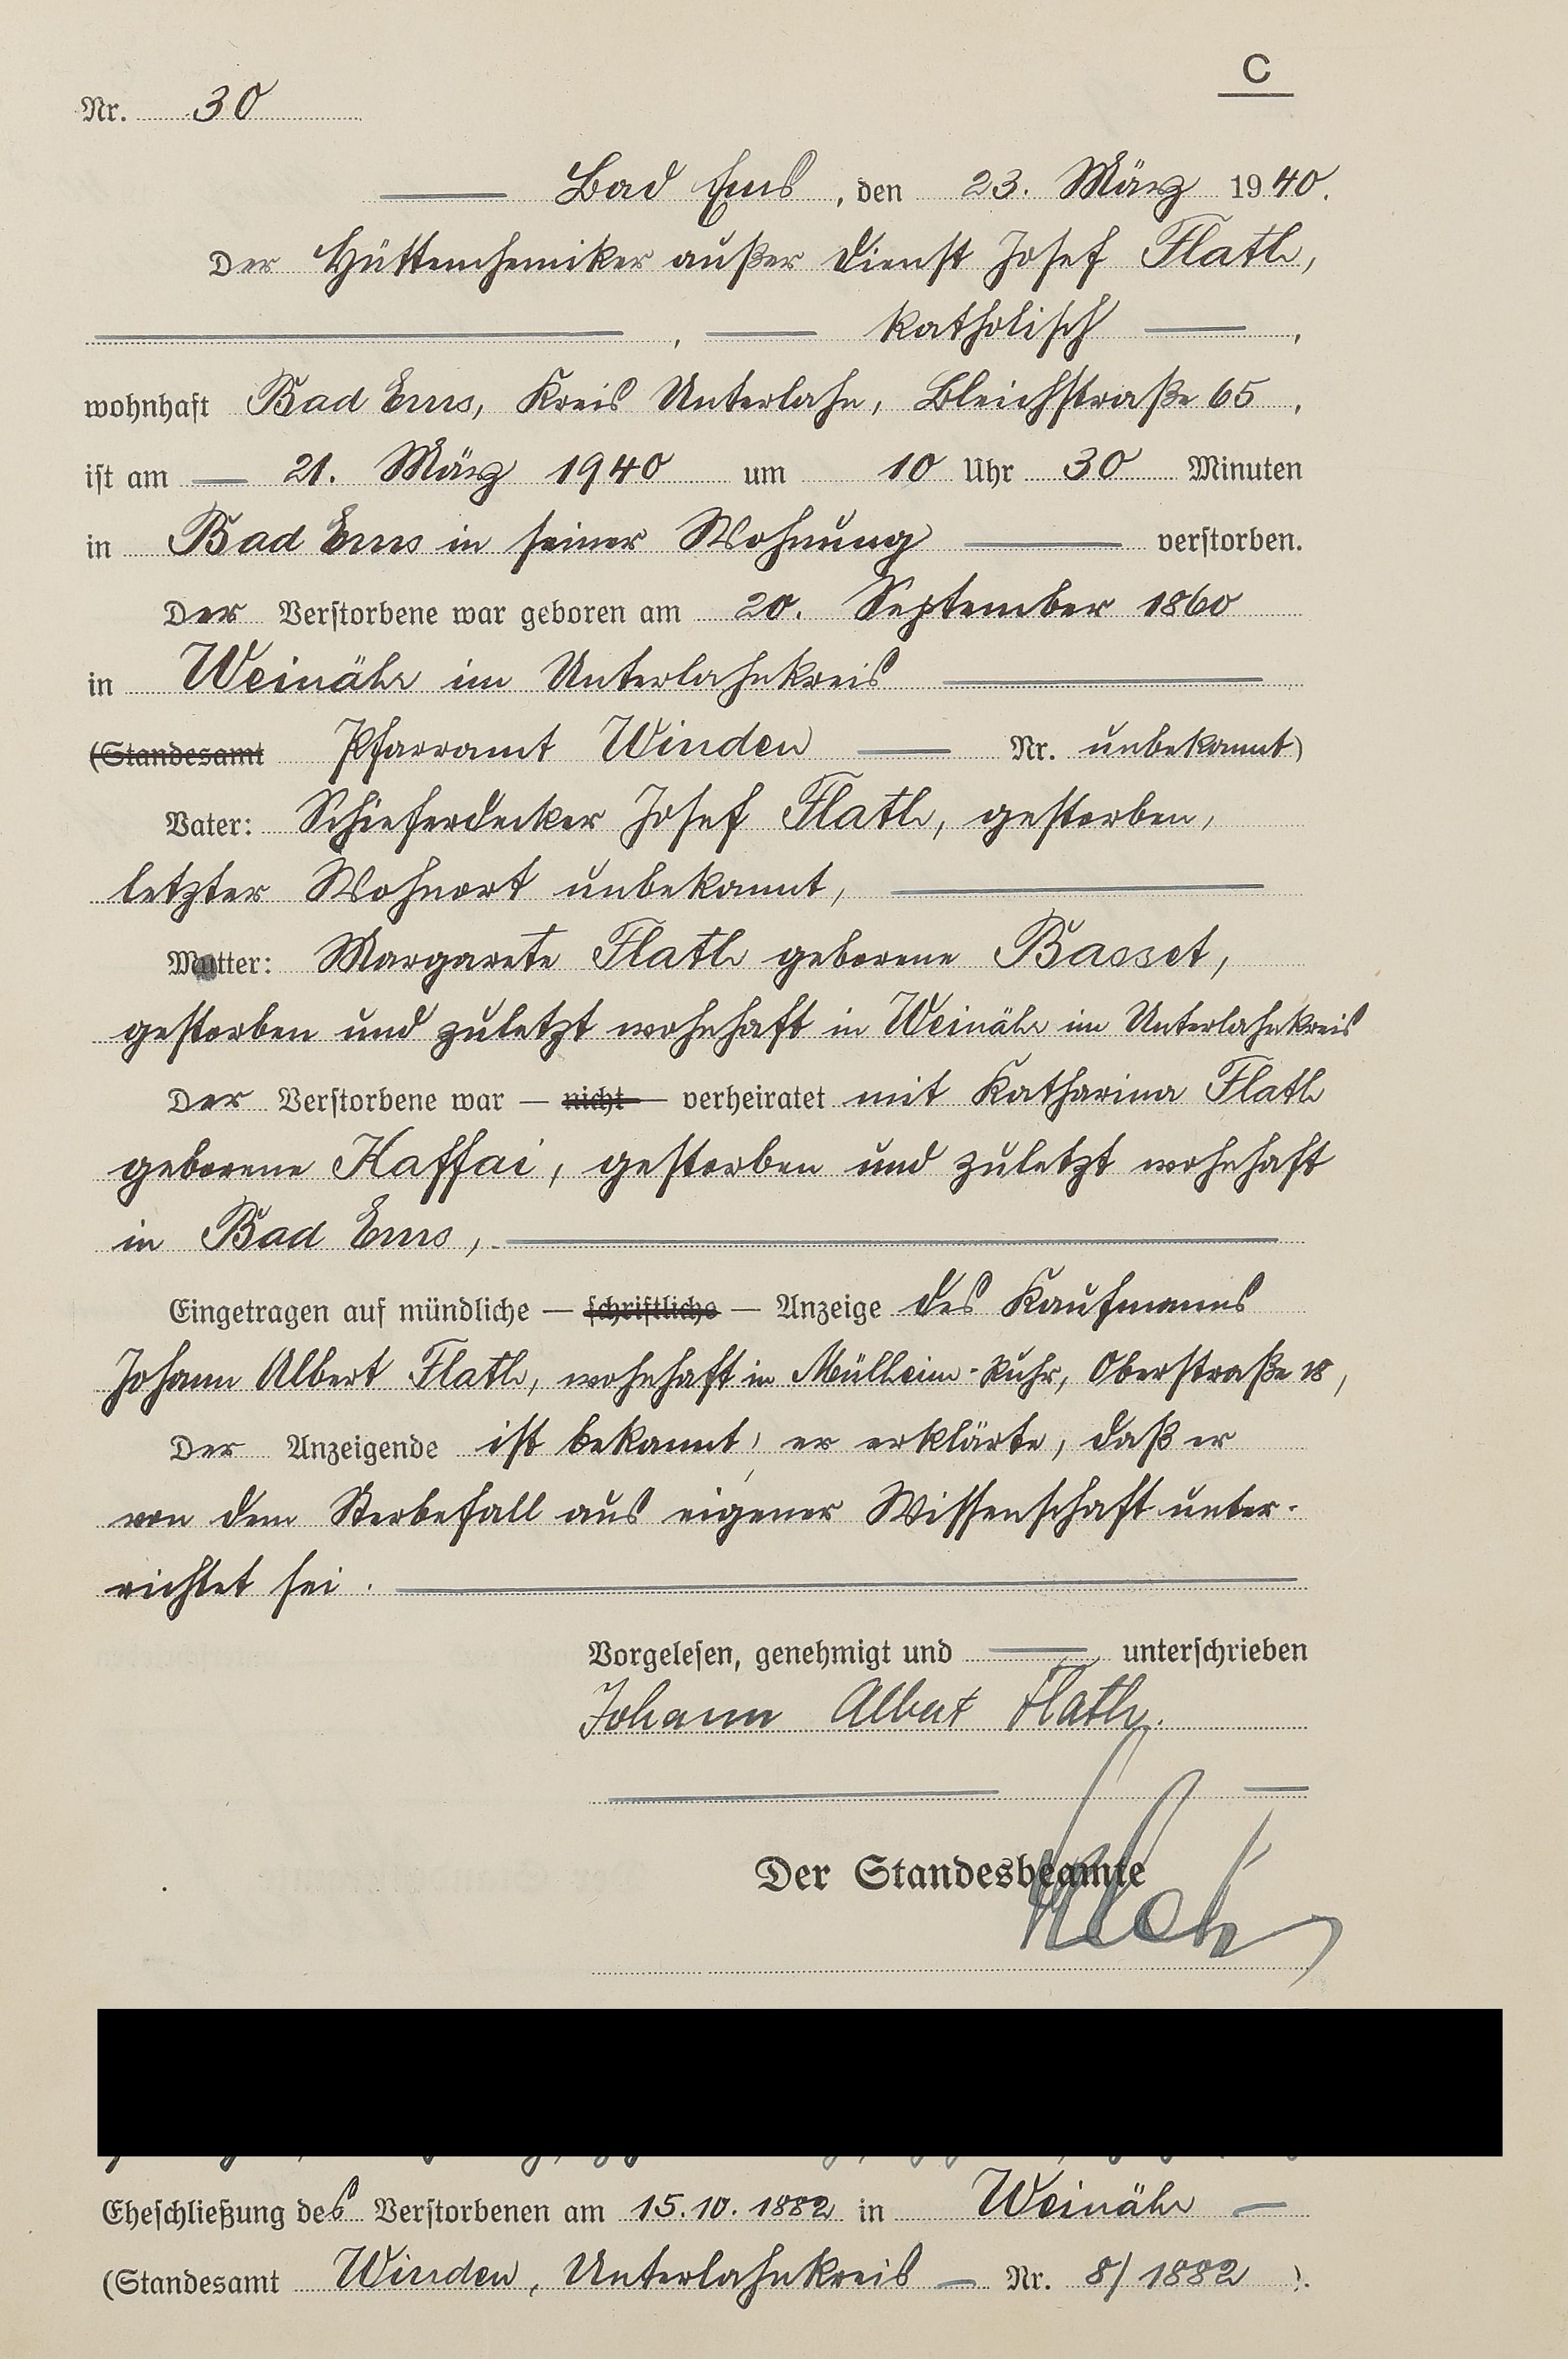 C
Nr. 30
Bad Ems, den 23. März 1940.
Der Hüttenchemiker außer Dienst Josef Flath,
, katholisch ,
wohnhaft Bad Ems, Kreis Unterlahn, Bleichstraße 65,
ist am 21. März 1940 um 10 Uhr 30 Minuten
in Bad Ems in seiner Wohnung verstorben.
Der Verstorbene war geboren am 20. September 1860
in Weinähr im Unterlahnkreis
(Standesamt Pfarramt Winden Nr. unbekannt)
Vater: Schieferdecker Josef Flath, gestorben,
letzter Wohnort unbekannt,
Mutter: Margarete Flath geborene Basset,
gestorben und zuletzt wohnhaft in Weinähr im Unterlahnkreis
Der Verstorbene war — nicht — verheiratet mit Katharina Flath
geborene Haffai, gestorben und zuletzt wohnhaft
in Bad Ems,
Eingetragen auf mündliche — schriftliche — Anzeige des Kaufmanns
Johann Albert Flath, wohnhaft in Mülheim-Ruhr, Oberstraße 18,
Der Anzeigende ist bekannt, er erklärte, daß er
von dem Sterbefall aus eigener Wissenschaft unter-
richtet sei.
Vorgelesen, genehmigt und unterschrieben
Johann Albert Flath.
Der Standesbeamte
Eheschließung des Verstorbenen am 15.10.1882 in Weinähr
(Standesamt Winden, Unterlahnkreis Nr. 8/1882).